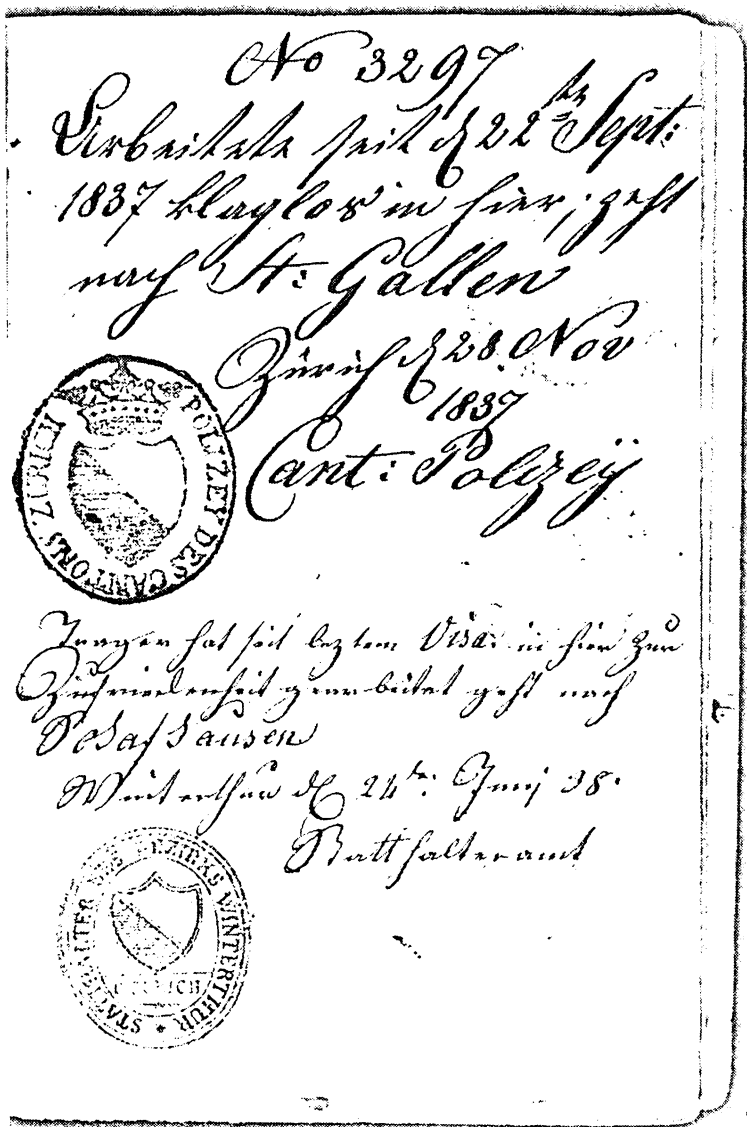 No 3297
Arbeitete seit d 22ten Sept:
1837 klaglos in hier, geht
nach St: Gallen
Zürich d 28 Nov
1837
Cant: Polizeÿ
POLIZEY DES CANTONS ZÜRICH
Trager hat seit leztem Visa: in hier zur
Zufriedenheit gearbeitet geht nach
Schafhausen
Winterthur d 24te: Junj 38.
Statthalteramt
STATTHALTER DES BEZIRKS WINTERTHUR *
ZÜRICH